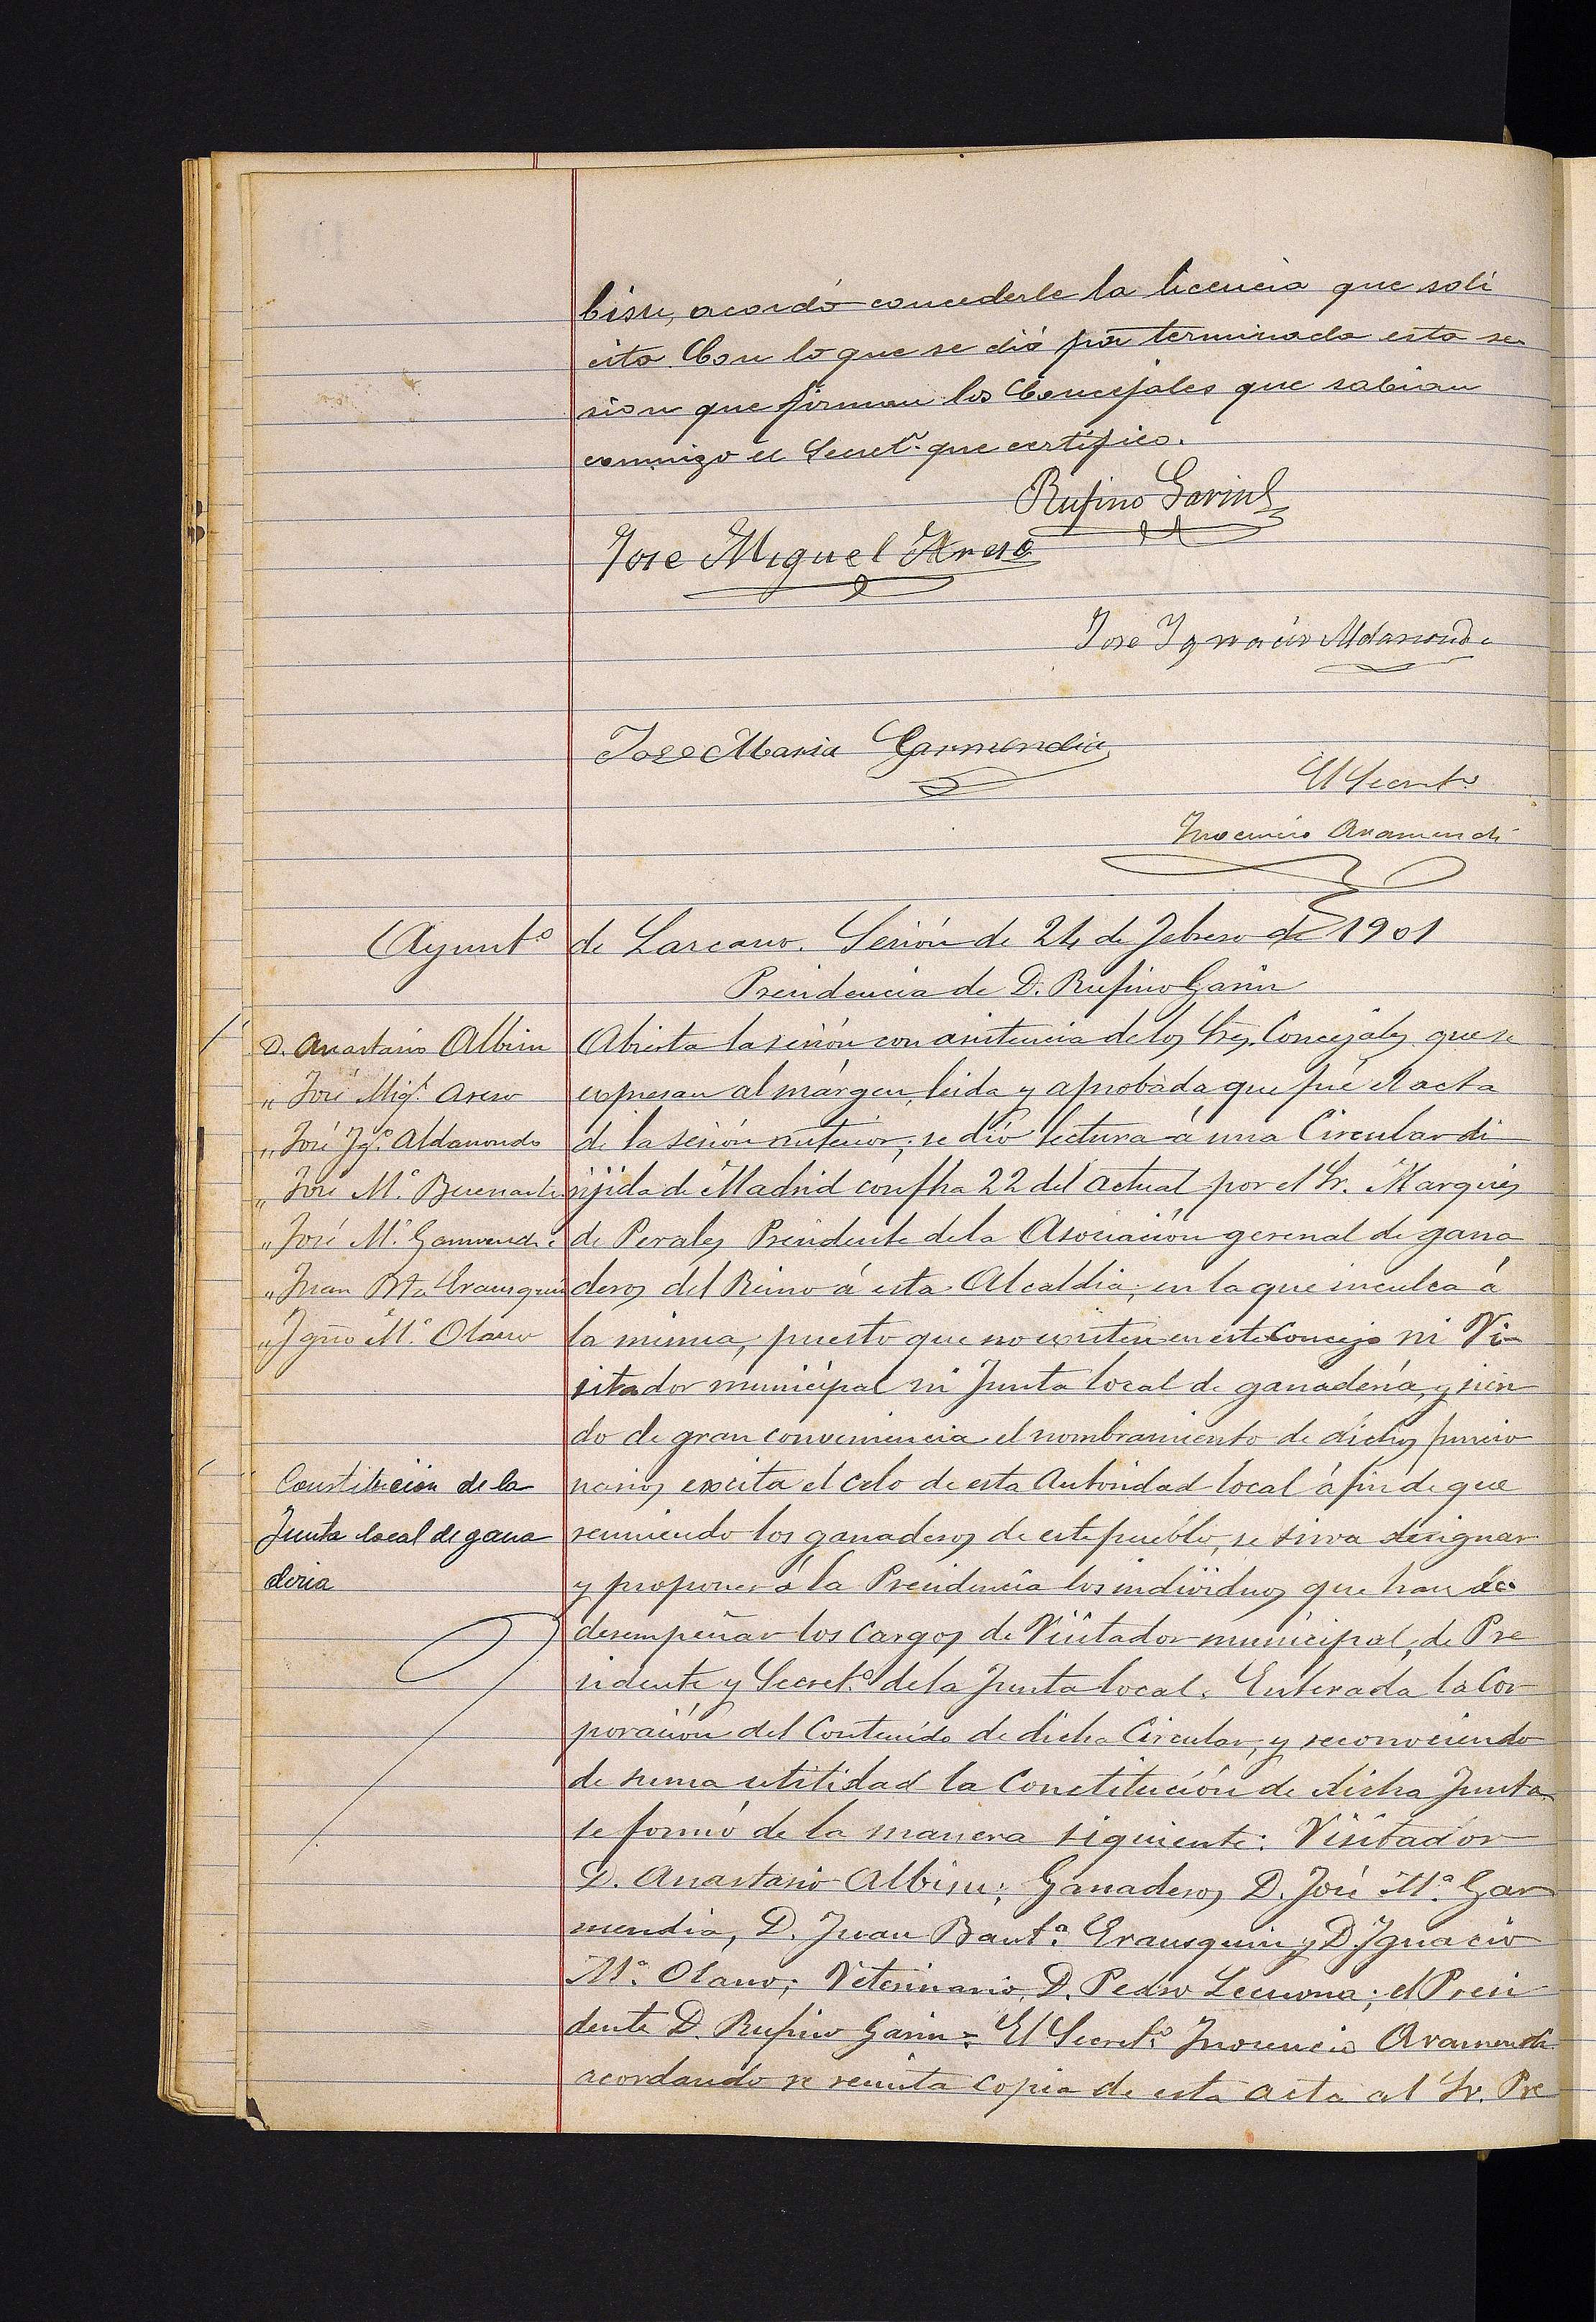 bisu, acordó concederle la licencia que soli
cita. Con lo que se dió por terminada esta se
sion que firman los Concejales que sabian
conmigo el Secret.º que certifico.
Rufino Garin
Jose Miguel Areso
Jose Ygnacio Aldanondo
Jose Maria Garmendia
El Secret.º
Ynocencio Aramendi
Ayunt.º de Lazcano. Sesión de 24 de Febrero de 1901
Presidencia de D. Rufino Garin
D. Anastasio Albisu
" José Mig.l Areso
" José Yg.º Aldanondo
" José M.ª Buenarte
" José M.ª Garmendia
" Juan Bta Erausquin
" Ygnº M.ª Olano
Constitución de la
Junta local de gana
deria
Abierta la sesión con asistencia de los Sres. Concejales que se
expresan al márgen, leida y aprobada que fué el acta
de la sesión anterior, se dió lectura á una Circular di
rijida de Madrid con fha 22 del actual por el Sr. Marqués
de Perales Presidente de la Asociación gerenal de gana
deros del Reino á esta Alcaldia, en la que inculca á
la misma, puesto que no existen en este Concejo ni Vi-
sitador municipal ni Junta local de ganadería, y sien
do de gran conveniencia el nombramiento de dichos funcio
narios, excita el celo de esta Autoridad local á fin de que
reuniendo los ganaderos de este pueblo, se sirva designar
y proponer á la Presidencia los individuos que han de
desempeñar los cargos de Visitador municipal, de Pre
sidente y Secret.º de la Junta local. Enterada la Cor
poración del Contenido de dicha Circular, y reconociendo
de suma utilidad la Constitución de dicha Junta
se formó de la manera siguiente: Visitador
D. Anastasio Albisu; Ganaderos, D. José M.ª Gar
mendia, D. Juan Baut.ª Erausquin y D. Ygnacio
M.ª Olano; Veterinario, D. Pedro Lecuona; el Presi
dente D. Rufino Garin = El Secret.º Ynocencio Aramendi
acordando se remita copia de esta acta al Sr. Pre